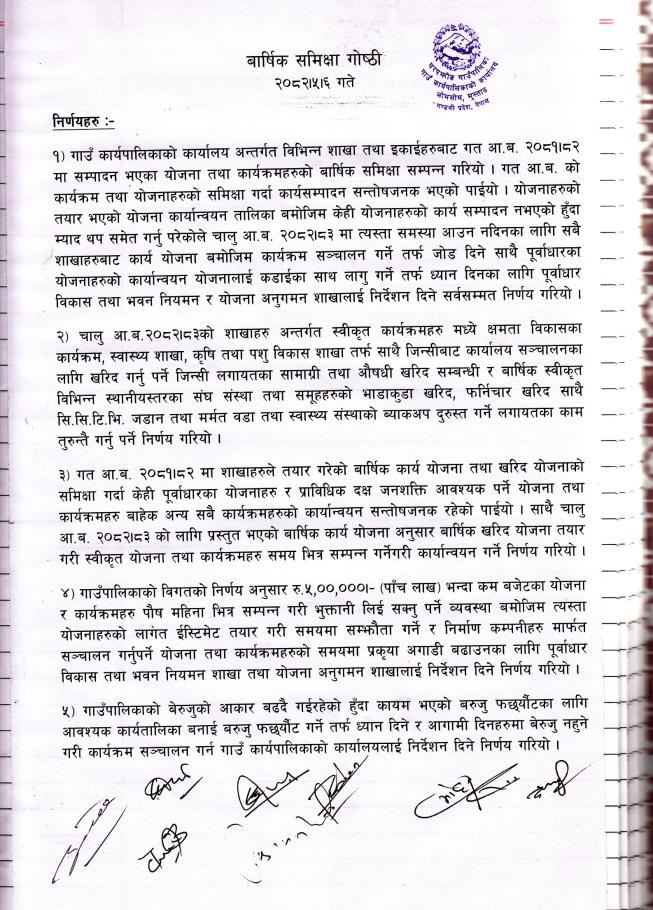 बार्षिक समिक्षा गोष्ठी
२०८२।५।६ गते
घरपझोङ गाउँपालिका
गाउँ कार्यपालिकाको कार्यालय
जोमसोम, मुस्ताङ
गण्डकी प्रदेश, नेपाल
निर्णयहरु :-
१) गाउँ कार्यपालिकाको कार्यालय अन्तर्गत विभिन्न शाखा तथा इकाईहरुबाट गत आ.ब. २०८१।८२
मा सम्पादन भएका योजना तथा कार्यक्रमहरुको बार्षिक समिक्षा सम्पन्न गरियो । गत आ.ब. को
कार्यक्रम तथा योजनाहरुको समिक्षा गर्दा कार्यसम्पादन सन्तोषजनक भएको पाईयो । योजनाहरुको
तयार भएको योजना कार्यान्वयन तालिका बमोजिम केही योजनाहरुको कार्य सम्पादन नभएको हुँदा
म्याद थप समेत गर्नु परेकोले चालु आ.ब. २०८२।८३ मा त्यस्ता समस्या आउन नदिनका लागि सबै
शाखाहरुबाट कार्य योजना बमोजिम कार्यक्रम सञ्चालन गर्ने तर्फ जोड दिने साथै पूर्वाधारका
योजनाहरुको कार्यान्वयन योजनालाई कडाईका साथ लागु गर्ने तर्फ ध्यान दिनका लागि पूर्वाधार
विकास तथा भवन नियमन र योजना अनुगमन शाखालाई निर्देशन दिने सर्वसम्मत निर्णय गरियो ।
२) चालु आ.ब.२०८२।८३को शाखाहरु अन्तर्गत स्वीकृत कार्यक्रमहरु मध्ये क्षमता विकासका
कार्यक्रम, स्वास्थ्य शाखा, कृषि तथा पशु विकास शाखा तर्फ साथै जिन्सीबाट कार्यालय सञ्चालनका
लागि खरिद गर्नु पर्ने जिन्सी लगायतका सामाग्री तथा औषधी खरिद सम्बन्धी र बार्षिक स्वीकृत
विभिन्न स्थानीयस्तरका संघ संस्था तथा समूहहरुको भाडाकुडा खरिद, फर्निचार खरिद साथै
सि.सि.टि.भि. जडान तथा मर्मत वडा तथा स्वास्थ्य संस्थाको ब्याकअप दुरुस्त गर्ने लगायतका काम
तुरुन्तै गर्नु पर्ने निर्णय गरियो ।
३) गत आ.ब. २०८१।८२ मा शाखाहरुले तयार गरेको बार्षिक कार्य योजना तथा खरिद योजनाको
समिक्षा गर्दा केही पूर्वाधारका योजनाहरु र प्राविधिक दक्ष जनशक्ति आवश्यक पर्ने योजना तथा
कार्यक्रमहरु बाहेक अन्य सबै कार्यक्रमहरुको कार्यान्वयन सन्तोषजनक रहेको पाईयो । साथै चालु
आ.ब. २०८२।८३ को लागि प्रस्तुत भएको बार्षिक कार्य योजना अनुसार बार्षिक खरिद योजना तयार
गरी स्वीकृत योजना तथा कार्यक्रमहरु समय भित्र सम्पन्न गर्नेगरी कार्यान्वयन गर्ने निर्णय गरियो ।
४) गाउँपालिकाको विगतको निर्णय अनुसार रु.५,००,०००।- (पाँच लाख) भन्दा कम बजेटका योजना
र कार्यक्रमहरु पौष महिना भित्र सम्पन्न गरी भुक्तानी लिई सक्नु पर्ने व्यवस्था बमोजिम त्यस्ता
योजनाहरुको लागत ईस्टिमेट तयार गरी समयमा सम्झौता गर्ने र निर्माण कम्पनीहरु मार्फत
सञ्चालन गर्नुपर्ने योजना तथा कार्यक्रमहरुको समयमा प्रकृया अगाडी बढाउनका लागि पूर्वाधार
विकास तथा भवन नियमन शाखा तथा योजना अनुगमन शाखालाई निर्देशन दिने निर्णय गरियो ।
५) गाउँपालिकाको बेरुजुको आकार बढदै गईरहेको हुँदा कायम भएको बरुजु फर्छ्यौटका लागि
आवश्यक कार्यतालिका बनाई बरुजु फर्छ्यौट गर्ने तर्फ ध्यान दिने र आगामी दिनहरुमा बेरुजु नहुने
गरी कार्यक्रम सञ्चालन गर्न गाउँ कार्यपालिकाको कार्यालयलाई निर्देशन दिने निर्णय गरियो ।